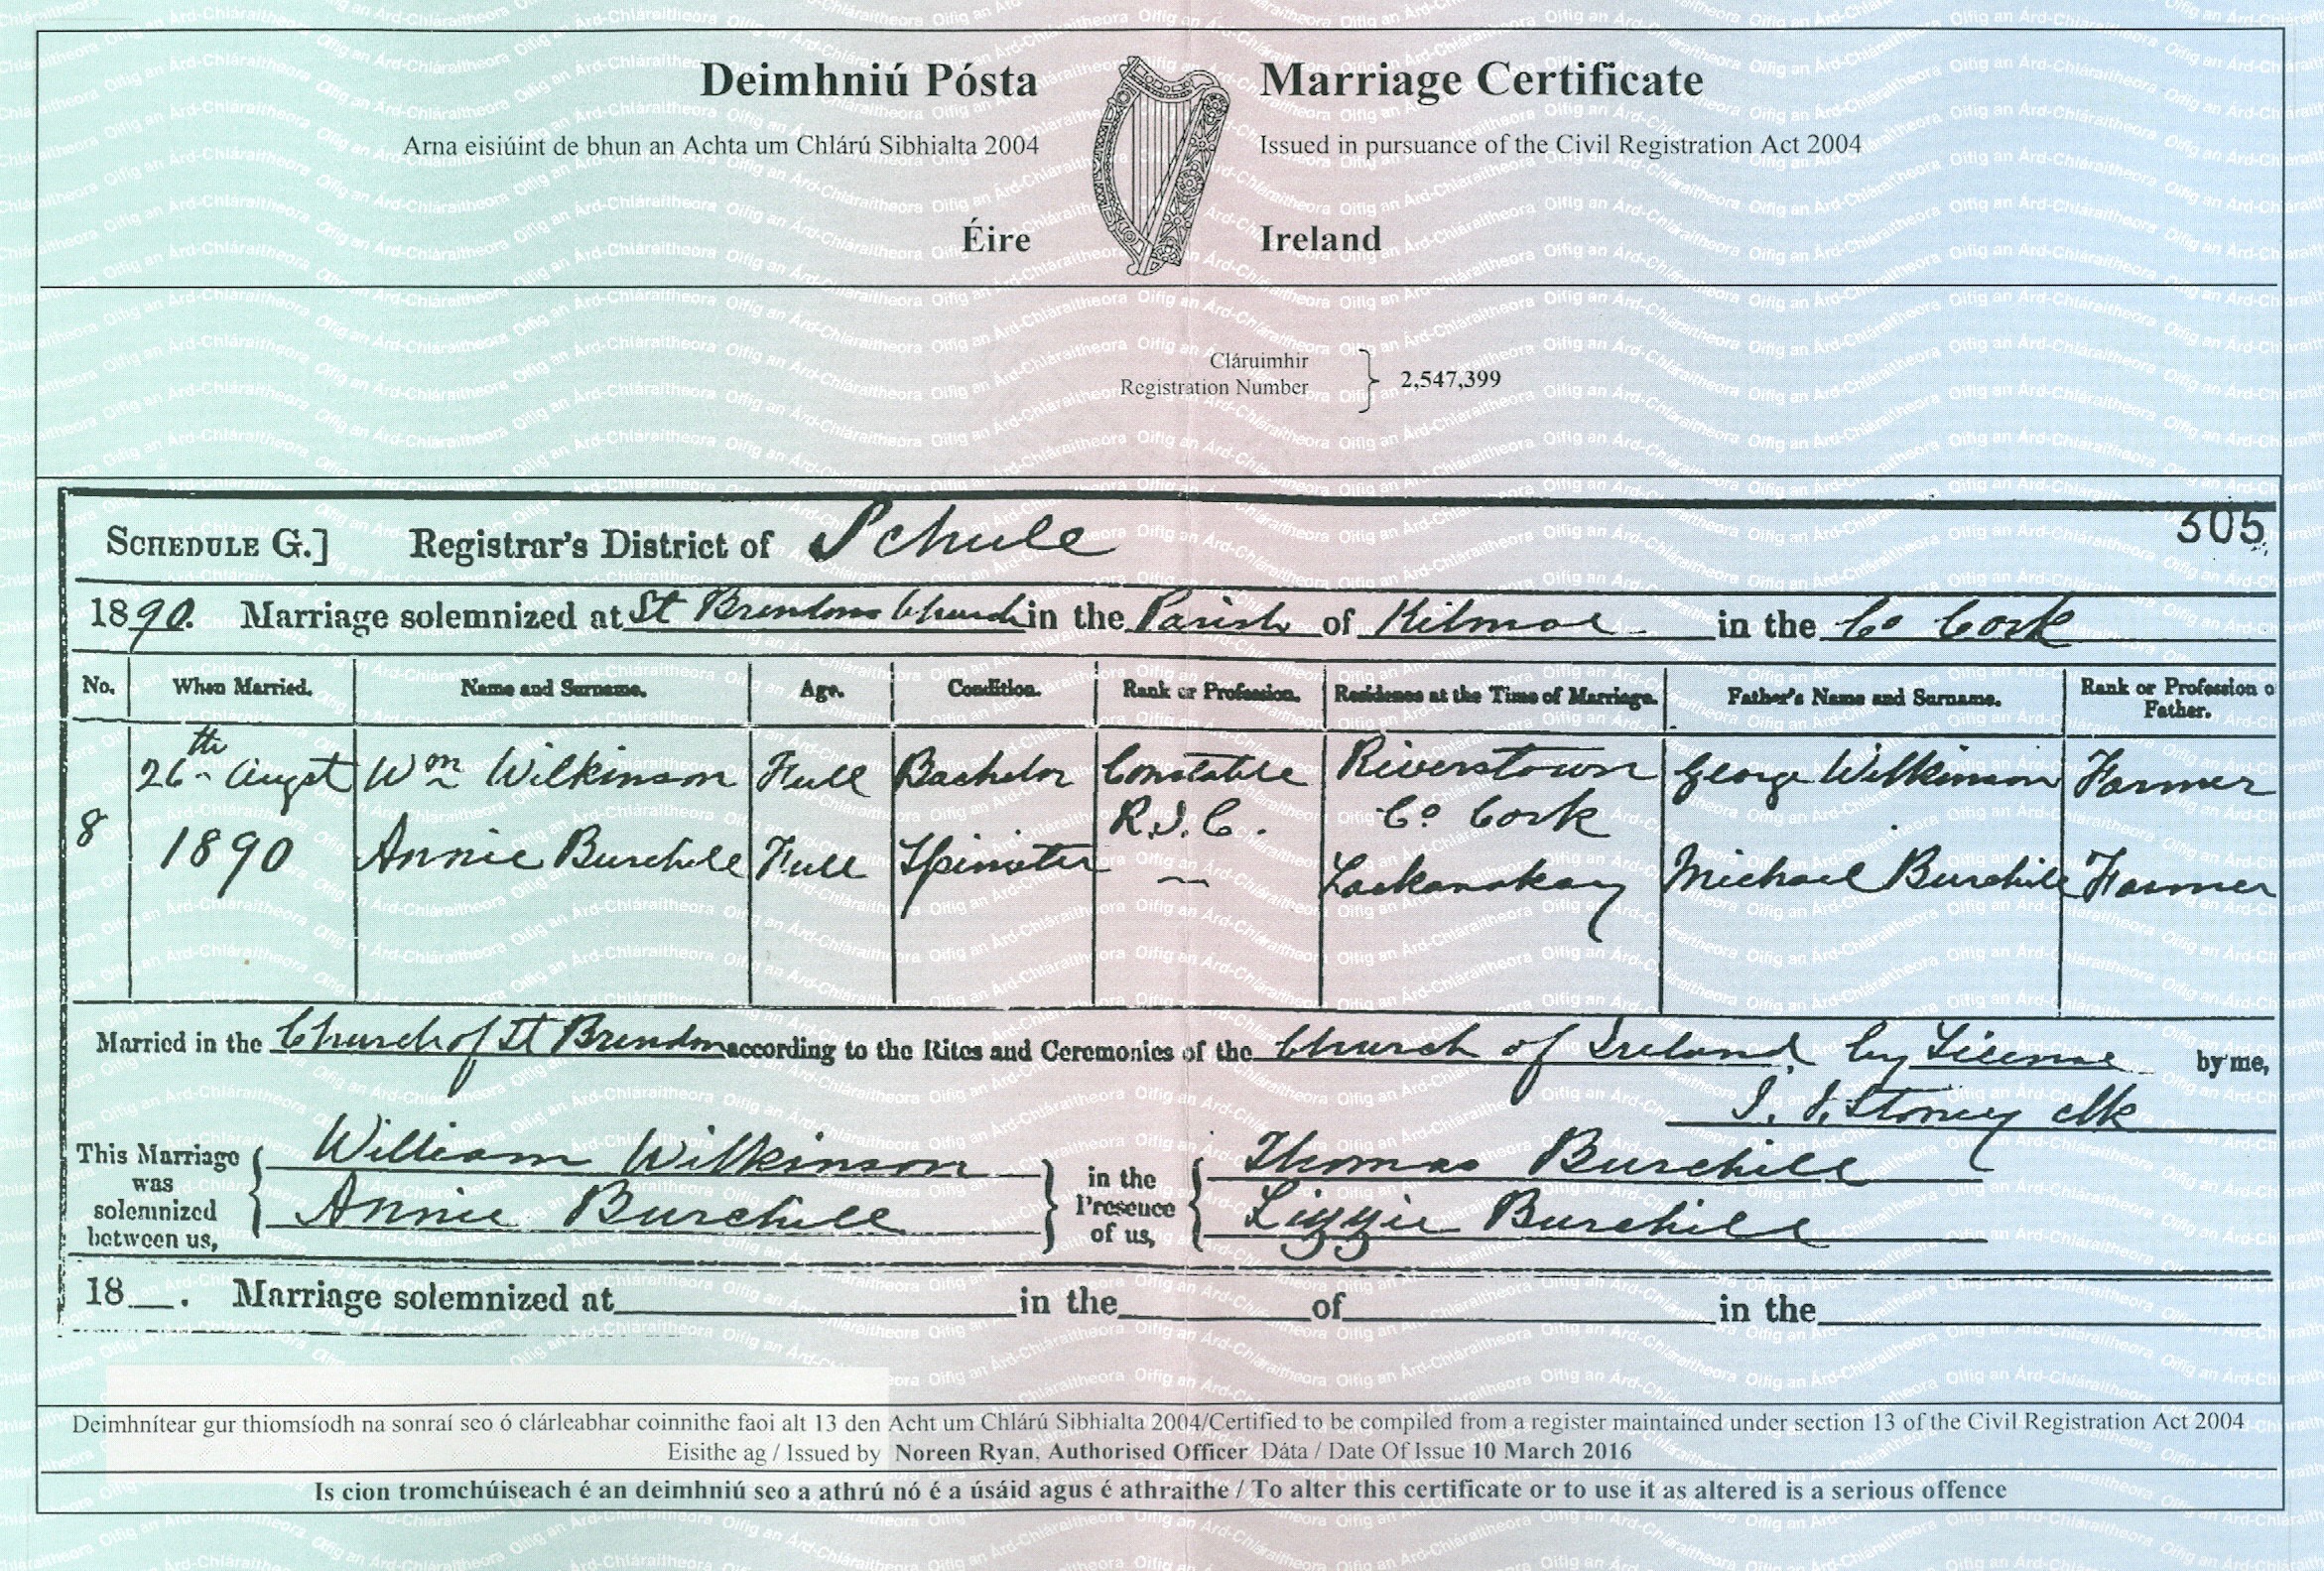 Deimhniú Pósta
Marriage Certificate
Arna eisiúint de bhun an Achta um Chlárú Sibhialta 2004
Issued in pursuance of the Civil Registration Act 2004
Éire
Ireland
Cláruimhir
Registration Number } 2,547,399
SCHEDULE G.] Registrar's District of Schule 305
1890. Marriage solemnized at St Brendons Church in the Parish of Kilmoe in the Co Cork
No. When Married. Name and Surname. Age. Condition. Rank or Profession. Residence at the Time of Marriage. Father's Name and Surname. Rank or Profession o
Father.
26th Augst Wm Wilkinson Full Bachelor Constable Riverstown George Wilkinson Farmer
8 R.I.C. Co Cork
1890 Annie Burchill Full Spinster — Lackanakay Michael Burchill Farmer
Married in the Church of St Brendon according to the Rites and Ceremonies of the Church of Ireland by License by me,
Stoney Clk
This Marriage was solemnized between us, { William Wilkinson } in the Presence of us, { Thomas Burchill
Annie Burchill Lizzie Burchill
18__. Marriage solemnized at in the of in the
Deimhnítear gur thiomsíodh na sonraí seo ó clárleabhar coinnithe faoi alt 13 den Acht um Chlárú Sibhialta 2004/Certified to be compiled from a register maintained under section 13 of the Civil Registration Act 2004
Eisithe ag / Issued by Noreen Ryan, Authorised Officer Dáta / Date Of Issue 10 March 2016
Is cion tromchúiseach é an deimhniú seo a athrú nó é a úsáid agus é athraithe / To alter this certificate or to use it as altered is a serious offence